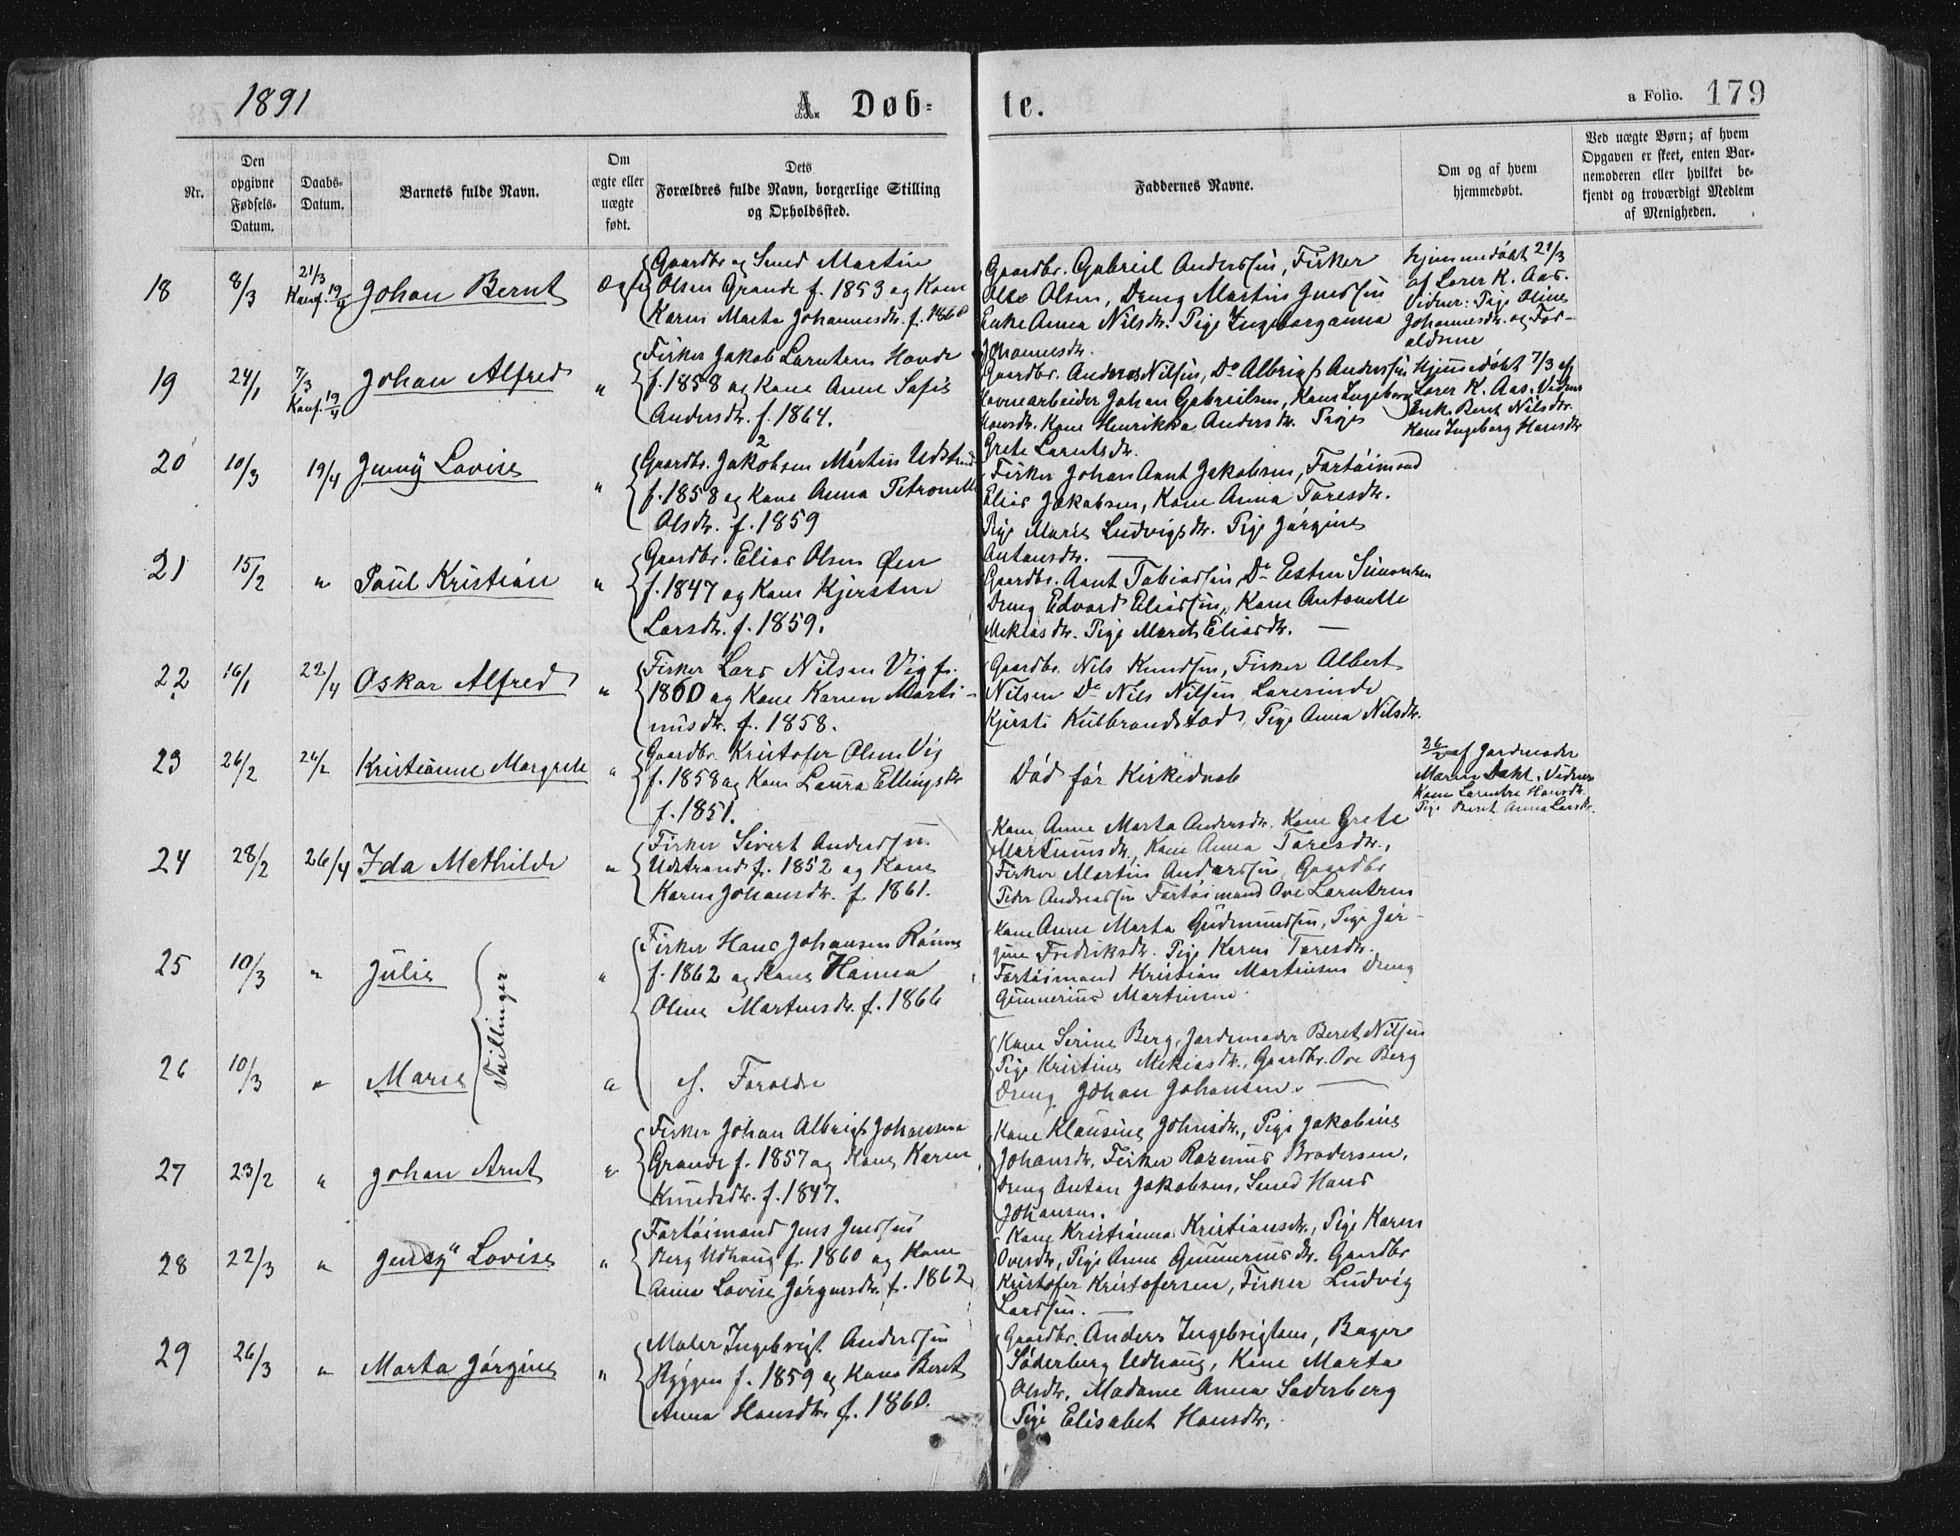 1891
A. Døb-
te.
a Folio. 179
Nr.
Den opgivne Fødsels-Datum.
Daabs-Datum.
Barnets fulde Navn.
Om ægte eller uægte født.
Dets Forældres fulde Navn, borgerlige Stilling og Opholdssted.
Faddernes Navne.
Om og af hvem hjemmedøbt.
Ved uægte Børn; af hvem Opgaven er skeet, enten Barnemoderen eller hvilket bekjendt og troværdigt Medlem af Menigheden.
18 8/3 21/3 Konf. 19/4 Johan Bernt Ægte
Gaardbr. og Smed Martin
Olsen Grande f. 1853 og Kone
Karen Marta Johannesdtr. f. 1860
Gaardbr. Gabriel Anderssen, Fisker
Olsen, Dreng Martin
Enke Anna Nilsdtr. Pige Ingeborganna
Johannesdtr.
Hjemmedøbt 21/3
af Lærer K. Aas.
Vidner: Pige Oline
Johannesdtr. og For-
ældrene
19 24/1 7/3 Konf. 19/4 Johan Alfred "
Fisker Jakob Larentsen Hovde
f. 1858 og Kone Anne Sofie
Andersdtr. f. 1864.
Gaardbr. Anders Nilsen, Do Albrigt Anderssen
Havnearbeider Johan Gabrielsen, Kone Ingeborg
Hansdtr. Kone Henrikka Andersdtr. Pige
Grete Larentsdtr.
Hjemmedøbt 7/3 af
Lærer K. Aas. Vidner
Enke Beret Nilsdtr.
Kone Ingeborg Hansdtr
20 10/3 19/4 Jenny Lovise "
Gaardbr. Jakobsen 2 Martin Udstrand
f. 1858 og Kone Anna Petronelle
Olsdtr. f. 1859
Fisker Johan Arnt Jakobsen, Fartøimand
Elias Jakobsen, Kone Anna Toresdtr.
Pige Marie Ludvigsdtr. Pige Jørgine
Antonsdtr. —
21 15/2 " Paul Kristian "
Gaardbr. Elias Olsen Øien
f. 1847 og Kone Kjersten
Larsdtr. f. 1859.
Gaardbr. Arnt Tobiassen, Do Esten Simonsen
Dreng Edvard Eliassen, Kone Antonette
Mekiasdtr. Pige Maret Eliasdtr. —
22 16/1 22/4 Oskar Alfred "
Fisker Lars Nilsen Vig f.
1860 og Kone Karen Marti-
nusdtr. f. 1858.
Gaardbr. Nils Knudsen, Fisker Albert
Nilsen Do Nils Nilsen, Lærerinde
Kjersti Kulbrandstad, Pige Anna Nilsdtr.
23 26/2 26/2 Kristianne Margrete "
Gaardbr. Kristofer Olsen Vig
f. 1858 og Kone Laura Ellingsdtr
f. 1851.
Død før Kirkedaab
26/2 af Jordmoder
Maren Dahl, Vidner
Kone Larentse Hansdtr.
Pige Beret Anna Larsdtr.
24 28/2 26/4 Ida Methilde "
Fisker Sivert Anderssen
Udstrand f. 1852 og Kone
Karen Johansdtr. f. 1861.
Kone Anne Marta Andersdtr. Kone Grete
Martinusdtr., Kone Anna Toresdtr.,
Fisker Martin Anderssen, Gaardbr
Peder Andreassen Fartøimand Ove Larentsen
25 10/3 " Julie Tvillinger "
Fisker Hans Johansen Rønne
f. 1862 og Kone Hanna
Oline Martinsdtr. f. 1866
Kone Anne Marta Gudmundsen, Pige Jør-
gine Fredriksdtr. Pige Karen Toresdtr.
Fartøimand Kristian Martinsen Dreng
Gunnerius Martinsen
26 10/3 " Marie "
s. Foroldre
Kone Serine Berg, Jordemoder Beret Nilsen
Pige Kristine Mekiasdtr., Gaardbr. Ove Berg
Dreng Johan Johansen. —
27 23/2 " Johan Arnt "
Fisker Johan Albrigt Johansen
Grande f. 1857 og Kone Karen
Knudsdtr. f. 1847.
Kone Klausine Johnsdtr., Pige Jakobine
Johansdtr. Fisker Rasmus Brodersen,
Dreng Anton Jakobsen, Smed Hans
Johansen.
28 22/3 " Jenny Lovise "
Fartøimand Jens Jenssen
Berg Udhaug f. 1860 og Kone
Anna Lovise Jørgensdtr. f. 1862
Kone Kristianna Kristiansdtr., Pige Karen
Ovesdtr, Pige Anne Gunneriusdtr. Gaardbr
Kristofer Kristofersen, Fisker Ludvig
Larssen. —
29 26/3 " Marta Jørgine "
Maler Ingebrigt Anderssen
Ryggen f. 1859 og Kone Beret
Anna Hansdtr. f. 1860.
Gaardbr. Anders Ingebrigtsen, Bager
Søderberg Udhaug, Kone Marta
Olsdtr. Madame Anna Søderberg
Pige Elisabet Hansdtr.